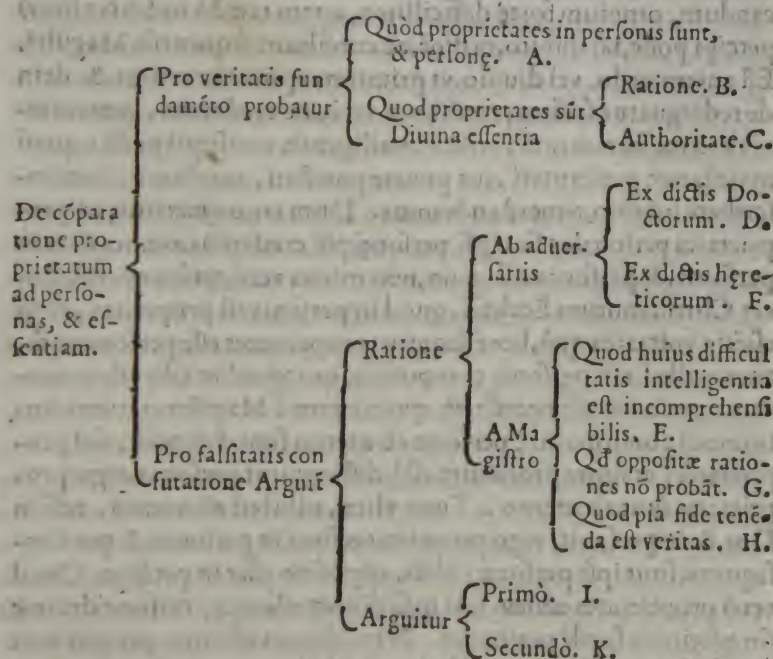 De cōpara
tione pro-
prietatum
ad perſo-
nas, & eſ-
ſentiam.
Pro veritatis fun
damēto probatur
Quòd proprietates in perſonis ſunt,
& perſonę. A.
Quod proprietates sūt
Diuina eſſentia
Ratione. B.
Authoritate. C.
Pro falſitatis con
futatione Arguit̄
Ratione
Ab aduer-
ſariis
Ex dictis Do-
ctorum. D.
Ex dictis hęre-
ticorum. F.
A Ma
giſtro
Quod huius difficul
tatis intelligentia
eſt incomprehenſi
bilis. E.
Qđ oppoſitæ ratio-
nes nō probāt. G.
Quod pia fide tenē-
da eſt veritas. H.
Arguitur
Primò. I.
Secundò. K.